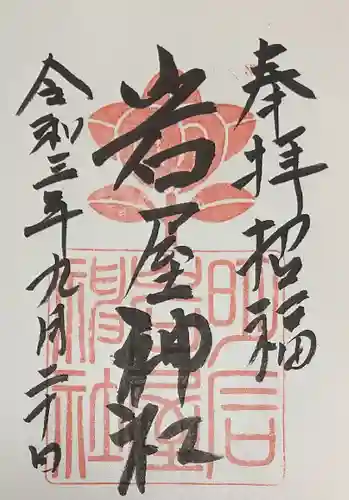 奉拝招福
岩屋神社
令和三年九月二十日
明石岩屋神社